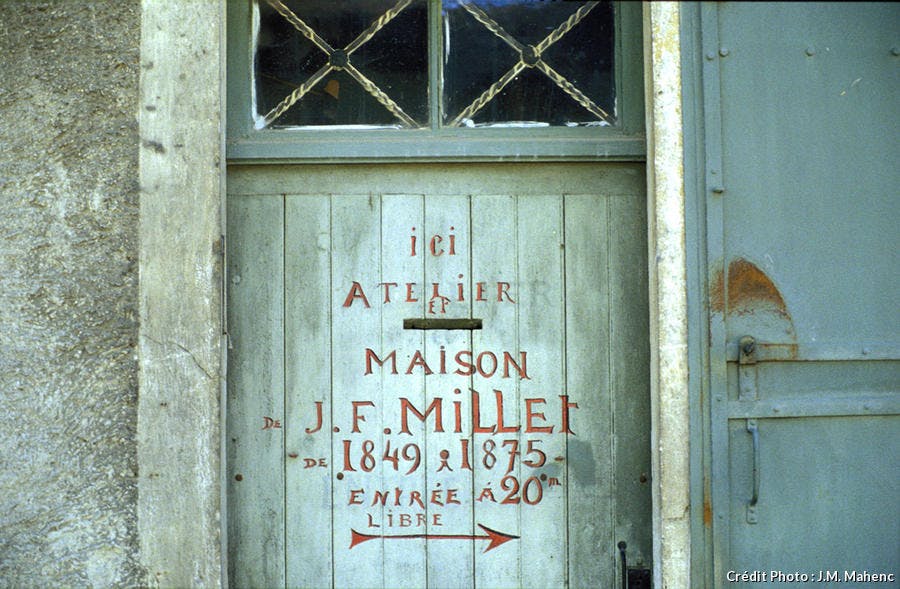 ici
ATELIER
ET
MAISON
DE J.F. MiLLET
DE 1849 à 1875
ENTRÉE à 20m
LIBRE
Crédit Photo : J.M. Mahenc